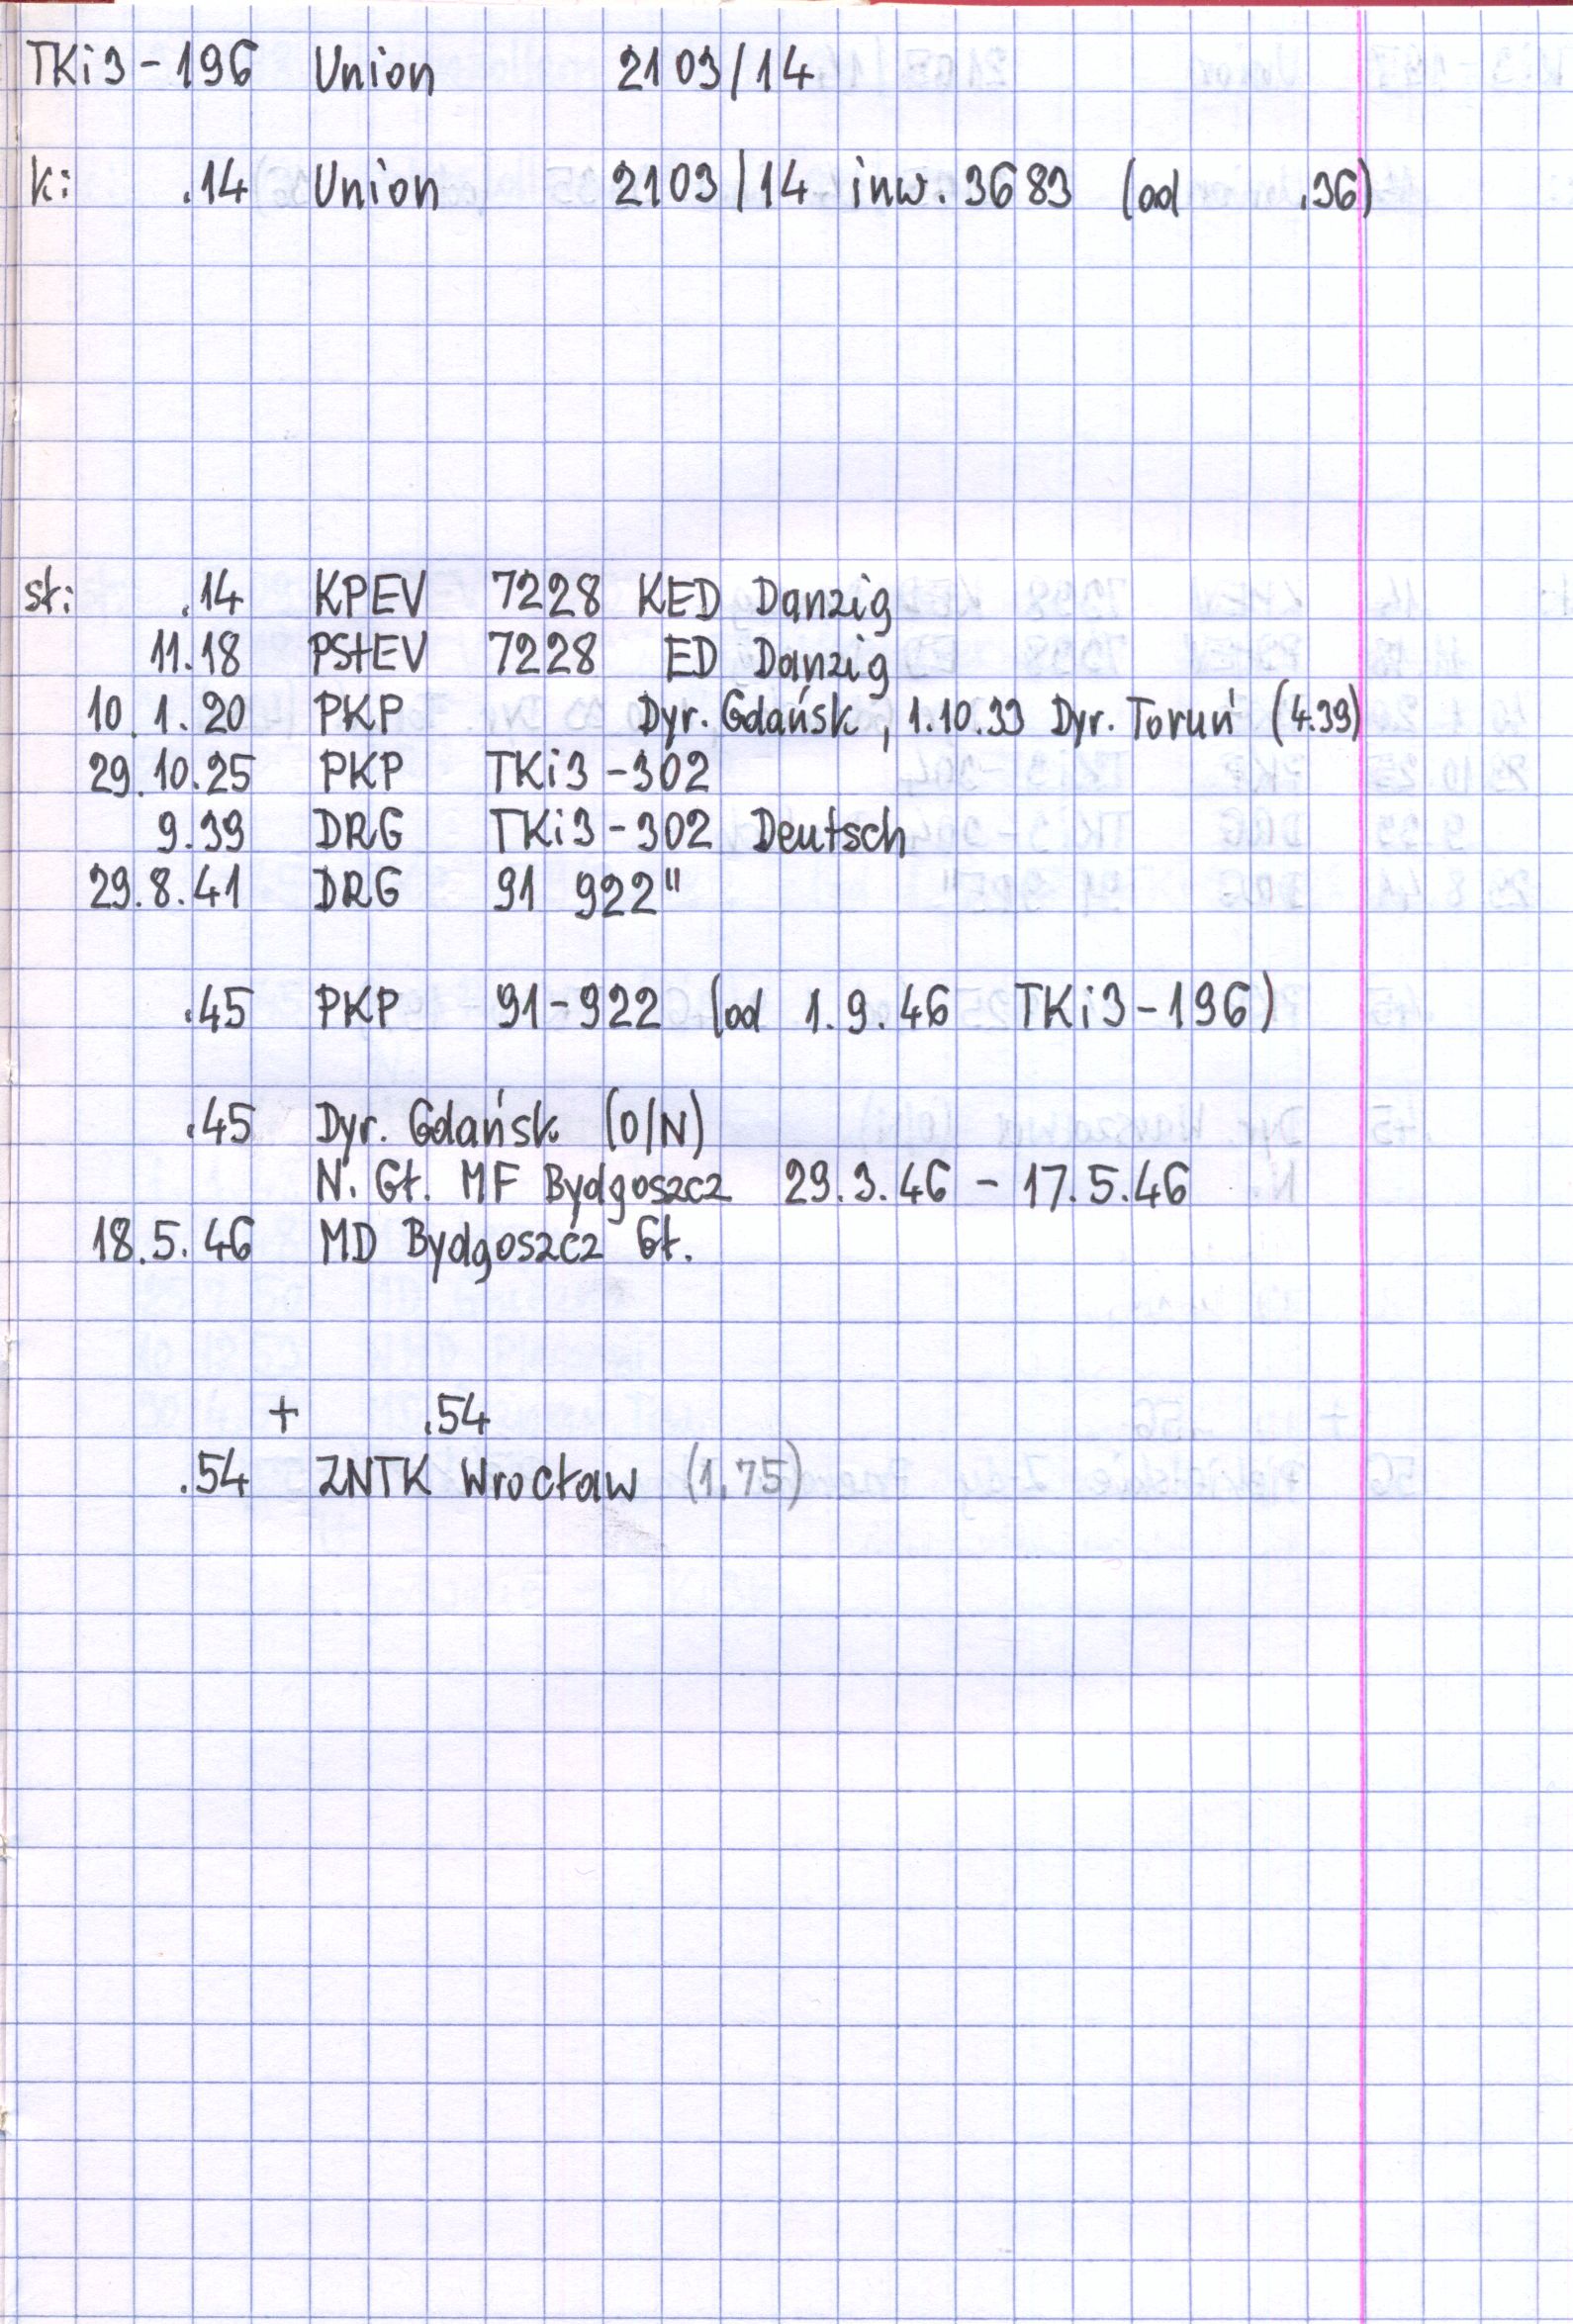 TKi3-196 Union 2103/14
k: .14 Union 2103/14 inw. 3683 (od .36)
st: .14 KPEV 7228 KED Danzig
11.18 PStEV 7228 ED Danzig
10.1.20 PKP Dyr. Gdańsk, 1.10.33 Dyr. Toruń (4.39)
29.10.25 PKP TKi3-302
9.39 DRG TKi3-302 Deutsch
29.8.41 DRG 91 922"
.45 PKP 91-922 (od 1.9.46 TKi3-196)
.45 Dyr. Gdańsk (O/N)
N. Gł. MF Bydgoszcz 29.3.46 - 17.5.46
18.5.46 MD Bydgoszcz Gł.
+ .54
.54 ZNTK Wrocław (1.75)